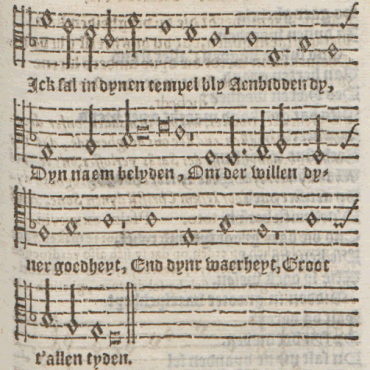 Ick sal in dynen tempel bly Aenbidden dy,
Dyn naem belyden, Om der willen dy-
ner goedheyt, End dynr waerheyt, Groot
t'allen tyden.